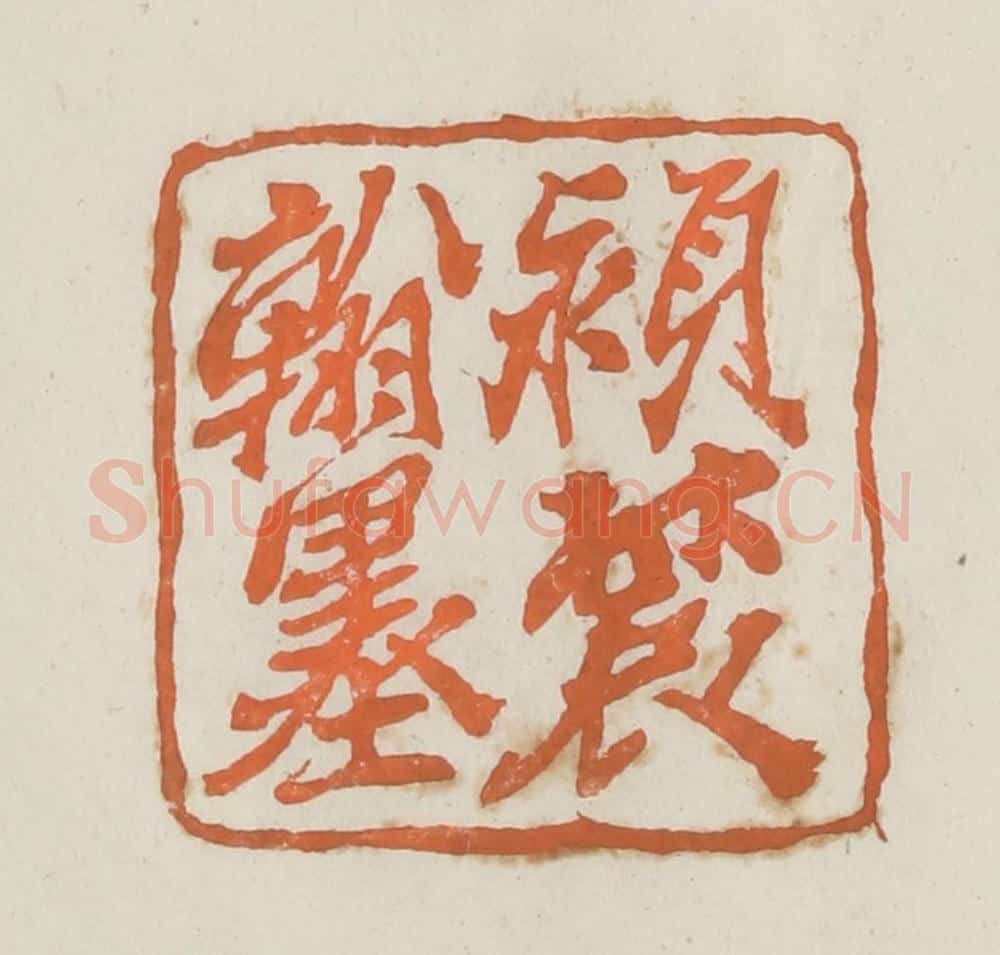 穎
翰墨
Shufawang.CN